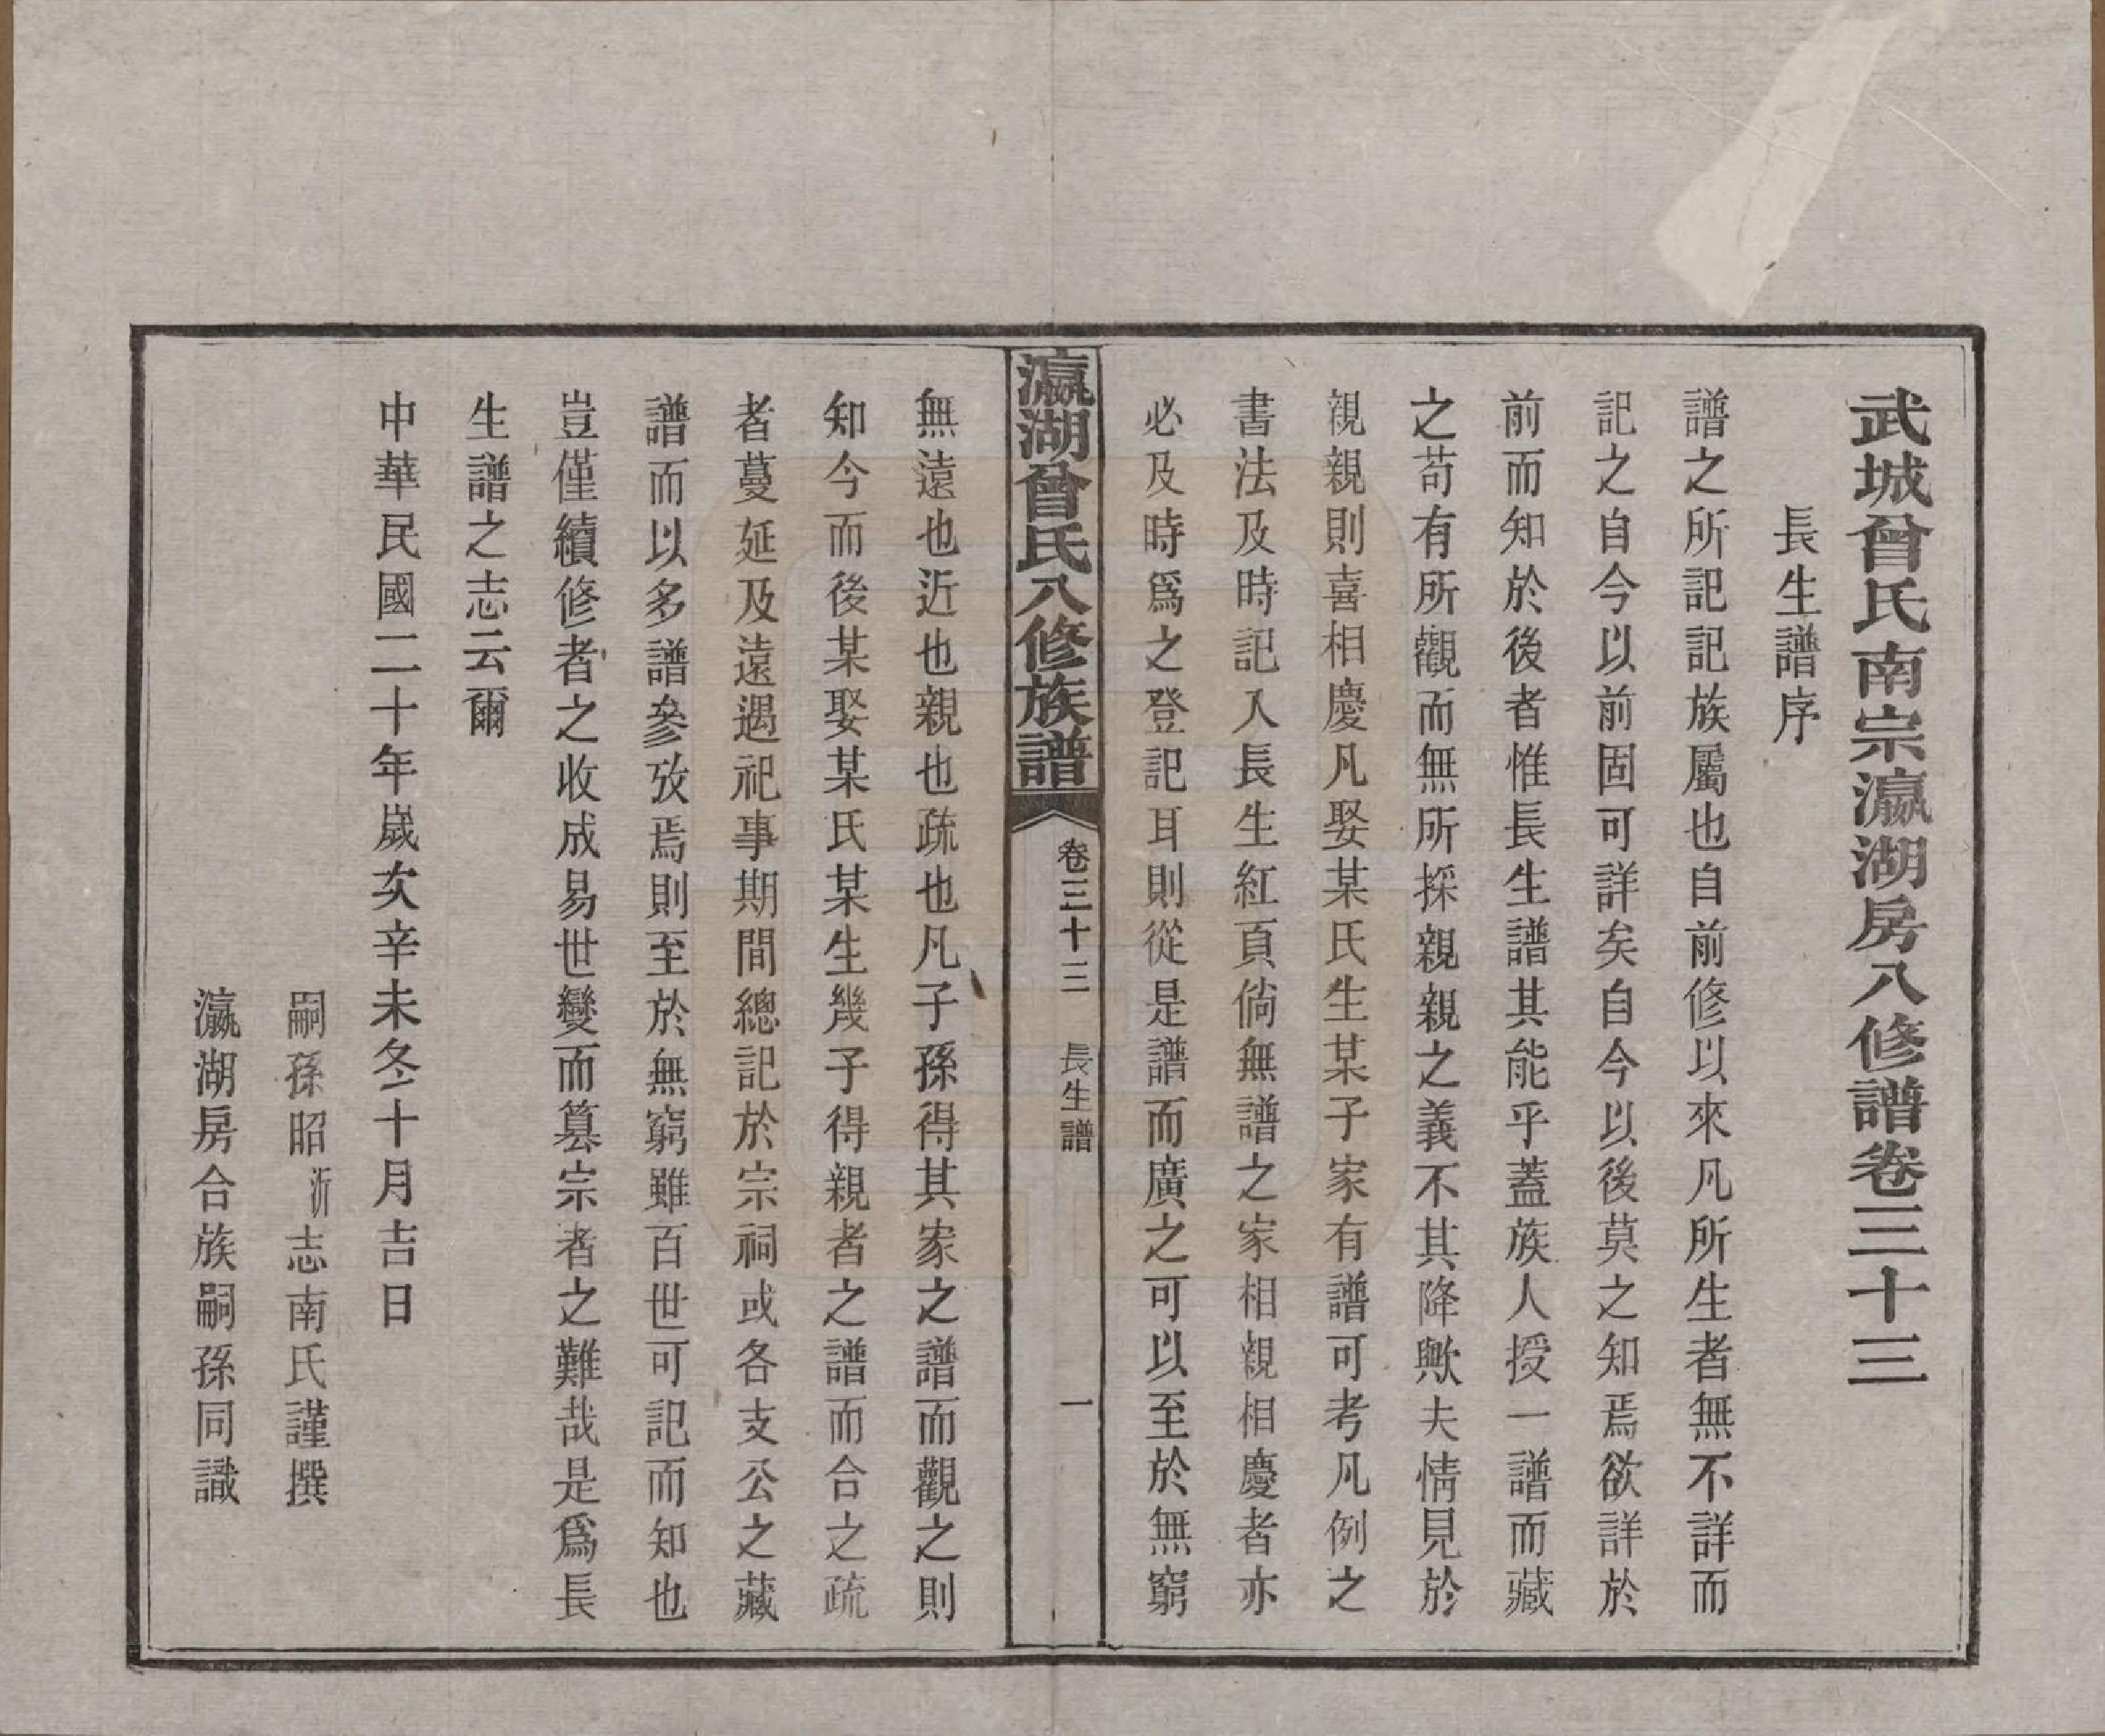 武城曾氏南宗瀛湖房八修譜卷三十三
長生譜序
譜之所記記族屬也自前修以來凡所生者無不詳而
記之自今以前固可詳矣自今以後莫之知焉欲詳於
前而知於後者惟長生譜其能乎蓋族人授一譜而藏
之苟有所觀而無所採親親之義不其降歟夫情見於
親親則喜相慶凡娶某氏生某子家有譜可考凡例之
書法及時記入長生紅頁倘無譜之家相親相慶者亦
必及時爲之登記耳則從是譜而廣之可以至於無窮
瀛湖曾氏八修族譜
卷三十三
長生譜
一
無遠也近也親也疏也凡子孫得其家之譜而觀之則
知今而後某娶某氏某生幾子得親者之譜而合之疏
者蔓延及遠遇祀事期間總記於宗祠或各支公之藏
譜而以多譜參攷焉則至於無窮雖百世可記而知也
豈僅續修者之收成易世變而篡宗者之難哉是爲長
生譜之志云爾
中華民國二十年歲次辛未冬十月吉日
嗣孫昭沂志南氏謹撰
瀛湖房合族嗣孫同識